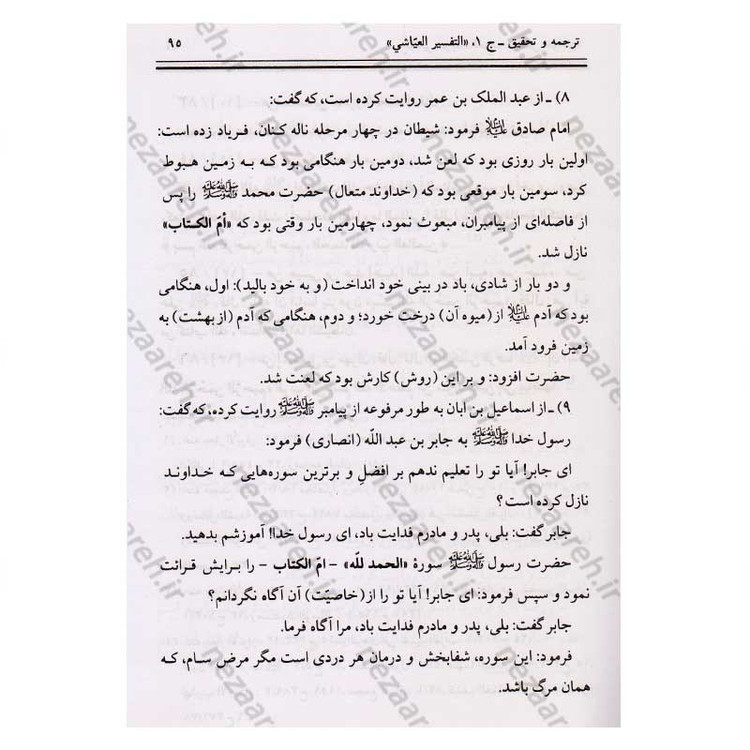 ترجمه و تحقیق ـ ج ۱، «التفسیر العیّاشي» ۹۵
۸) ـ از عبد الملک بن عمر روایت کرده است، که گفت:
امام صادق علیه السلام فرمود: شیطان در چهار مرحله ناله کنان، فریاد زده است:
اولین بار روزی بود که لعن شد، دومین بار هنگامی بود که به زمین هبوط
کرد، سومین بار موقعی بود که (خداوند متعال) حضرت محمد صلی الله علیه وآله را پس
از فاصله‌ای از پیامبران، مبعوث نمود، چهارمین بار وقتی بود که «اُمّ الکتاب»
نازل شد.
و دو بار از شادی، باد در بینی خود انداخت (و به خود بالید): اول، هنگامی
بود که آدم علیه السلام از (میوه آن) درخت خورد؛ و دوم، هنگامی که آدم (از بهشت) به
زمین فرود آمد.
حضرت افزود: و بر این (روش) کارش بود که لعنت شد.
۹) ـ از اسماعیل بن ابان به طور مرفوعه از پیامبر صلی الله علیه وآله روایت کرده، که گفت:
رسول خدا صلی الله علیه وآله به جابر بن عبد اللّه (انصاری) فرمود:
ای جابر! آیا تو را تعلیم ندهم بر افضلِ و برترین سوره‌هایی که خداوند
نازل کرده است؟
جابر گفت: بلی، پدر و مادرم فدایت باد، ای رسول خدا! آموزشم بدهید.
حضرت رسول صلی الله علیه وآله سورهٔ «الحمد للّه» – امّ الکتاب – را برایش قرائت
نمود و سپس فرمود: ای جابر! آیا تو را از (خاصیّت) آن آگاه نگردانم؟
جابر گفت: بلی، پدر و مادرم فدایت باد، مرا آگاه فرما.
فرمود: این سوره، شفابخش و درمان هر دردی است مگر مرض سام، که
همان مرگ باشد.
nezaareh.ir